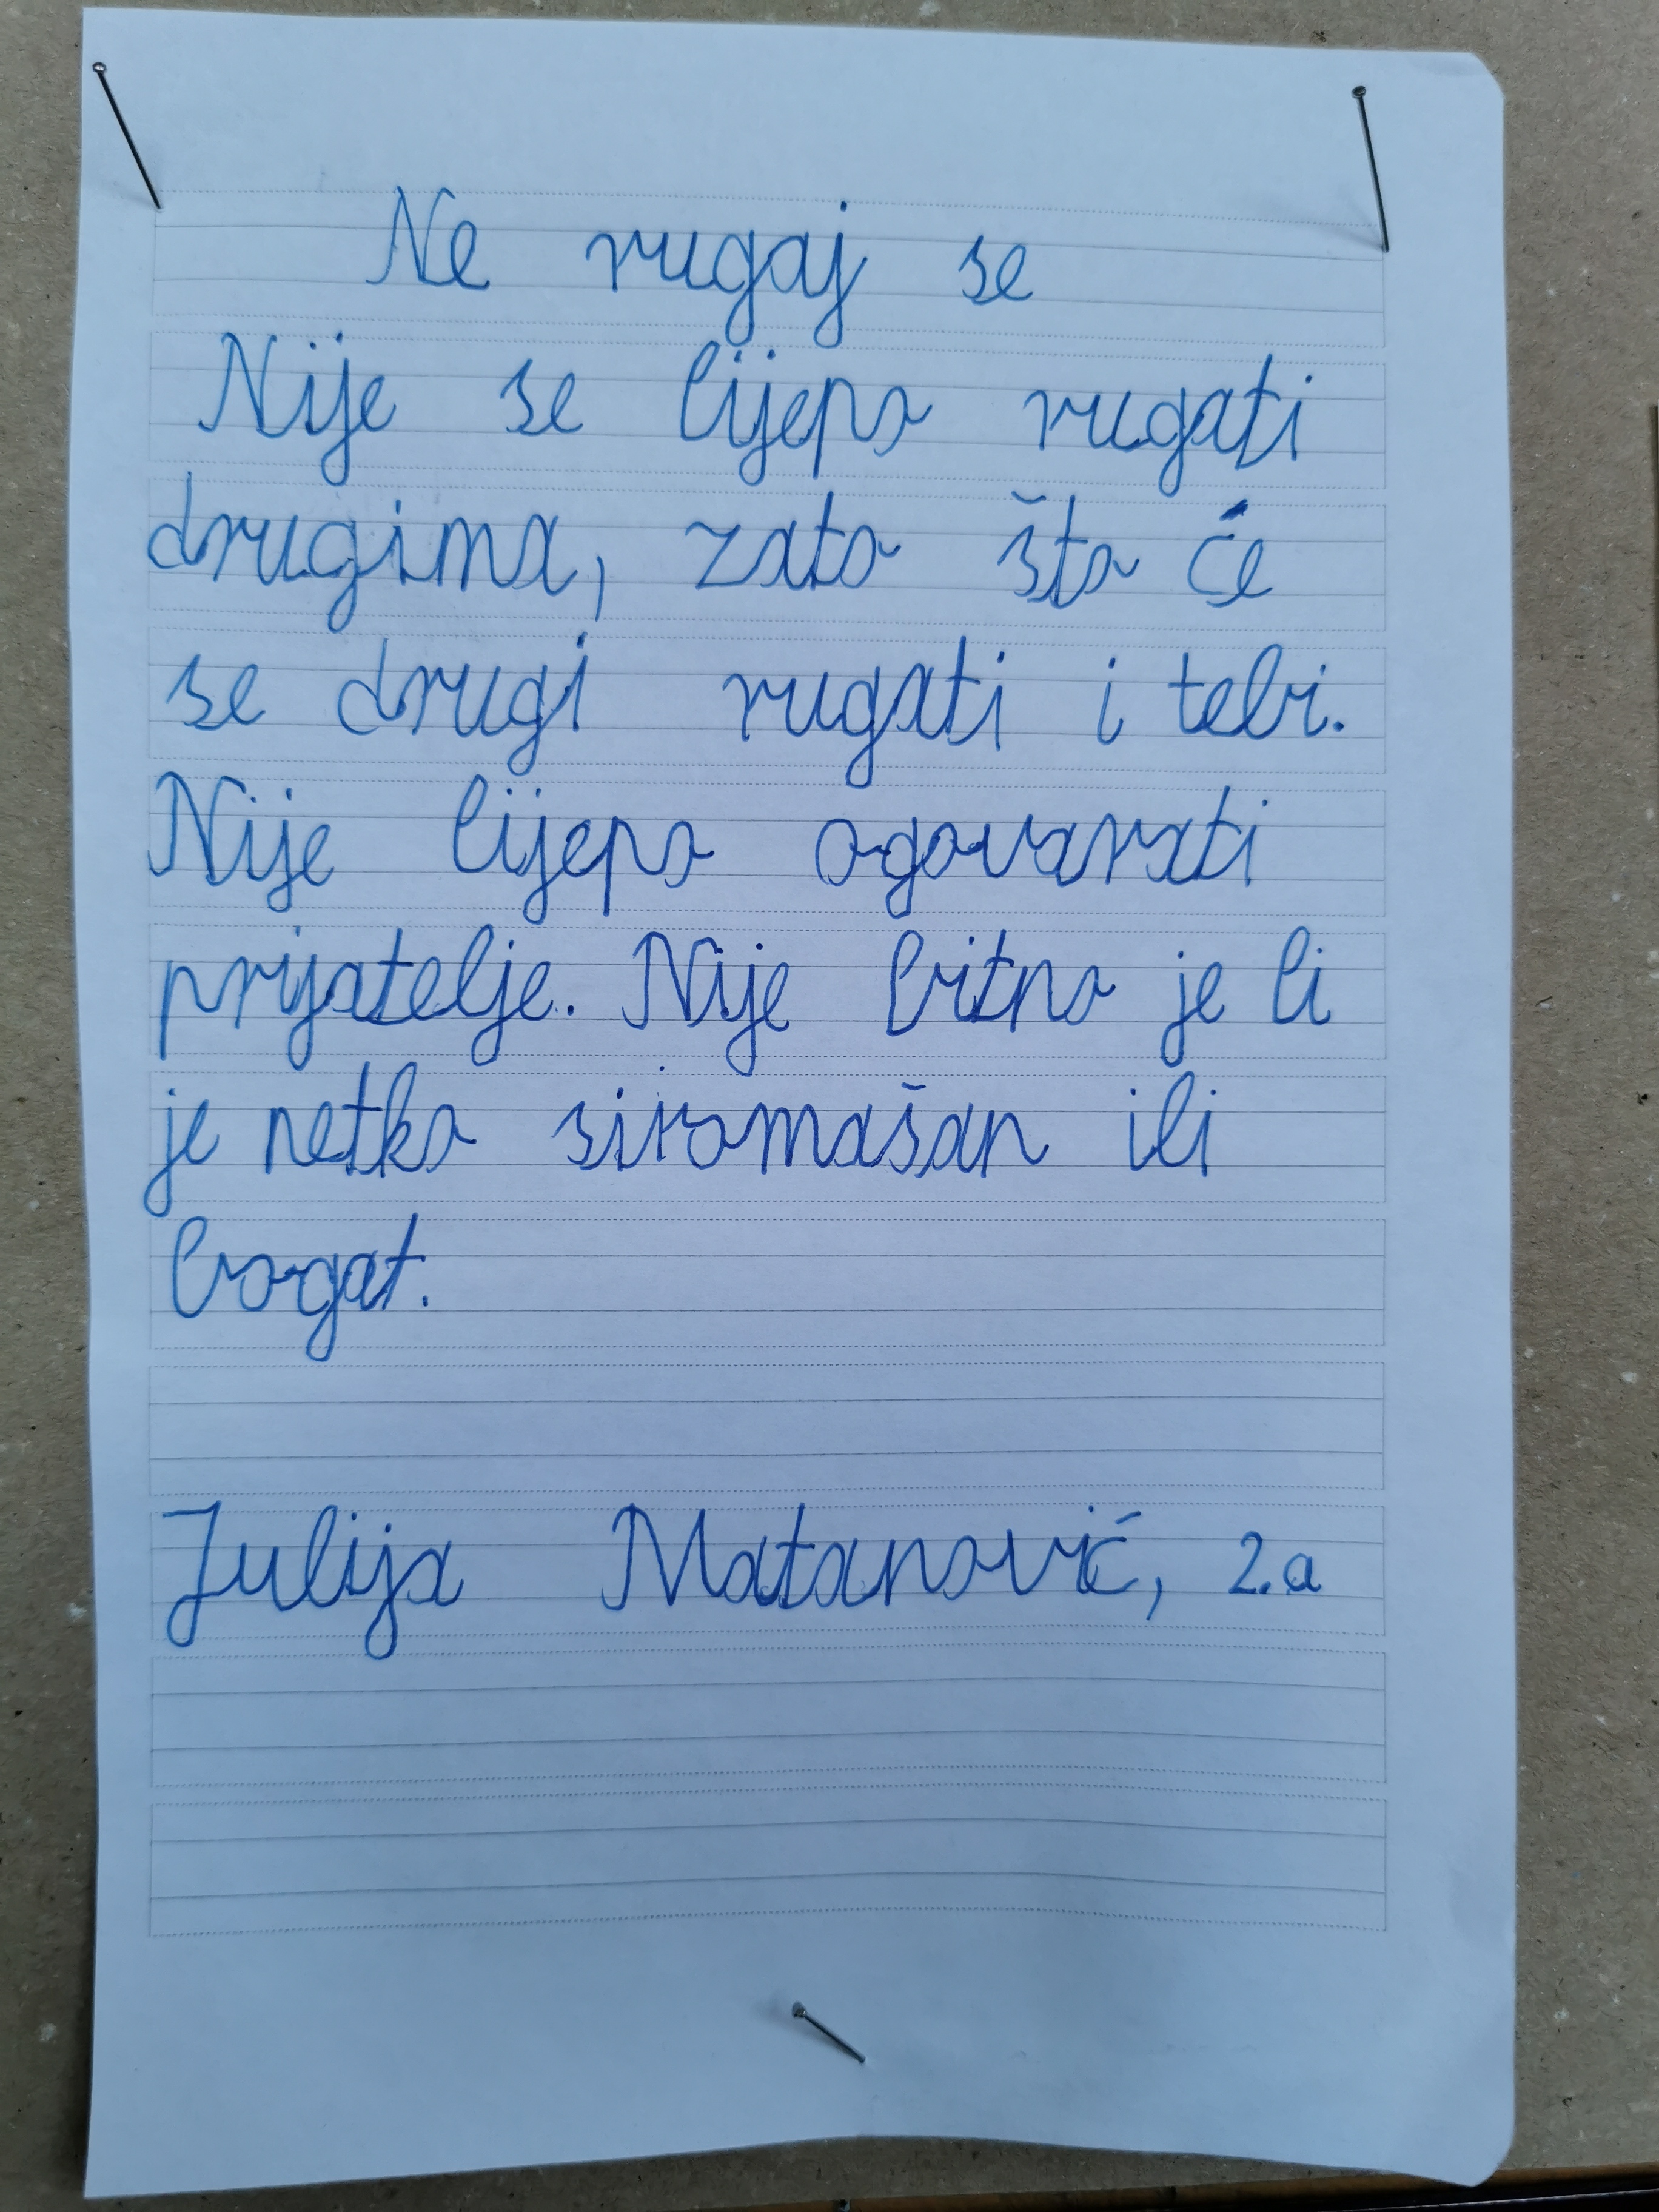 Ne rugaj se
Nije se lijepo rugati
drugima, zato što će
se drugi rugati i tebi.
Nije lijepo ogovarati
prijatelje. Nije bitno je li
je netko siromašan ili
bogat.
Julija Matanović, 2.a